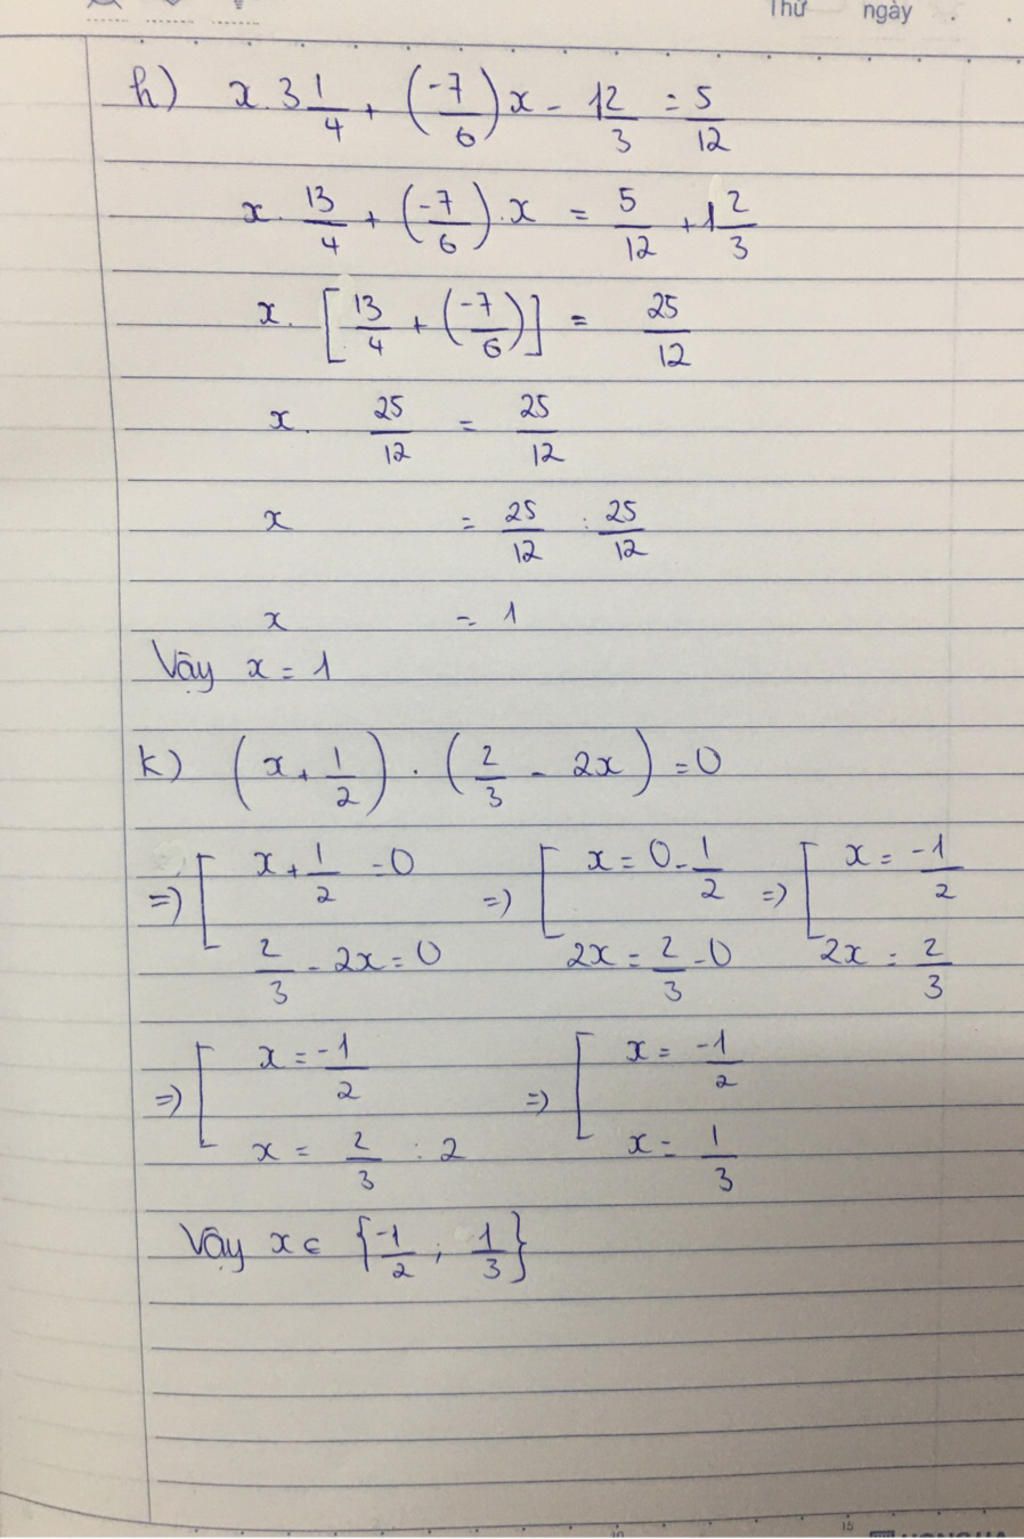 Thứ ngày
h) x.3 1/4 + (-7/6)x - 1 2/3 = 5/12
x. 13/4 + (-7/6).x = 5/12 + 1 2/3
x. [13/4 + (-7/6)] = 25/12
x. 25/12 = 25/12
x = 25/12 : 25/12
x = 1
Vậy x = 1
k) (x + 1/2) . (2/3 - 2x) = 0
=> [ x + 1/2 = 0 => [ x = 0 - 1/2 => [ x = -1/2
2/3 - 2x = 0 2x = 2/3 - 0 2x = 2/3
=> [ x = -1/2 => [ x = -1/2
x = 2/3 : 2 x = 1/3
Vậy x ∈ {-1/2 ; 1/3}
15